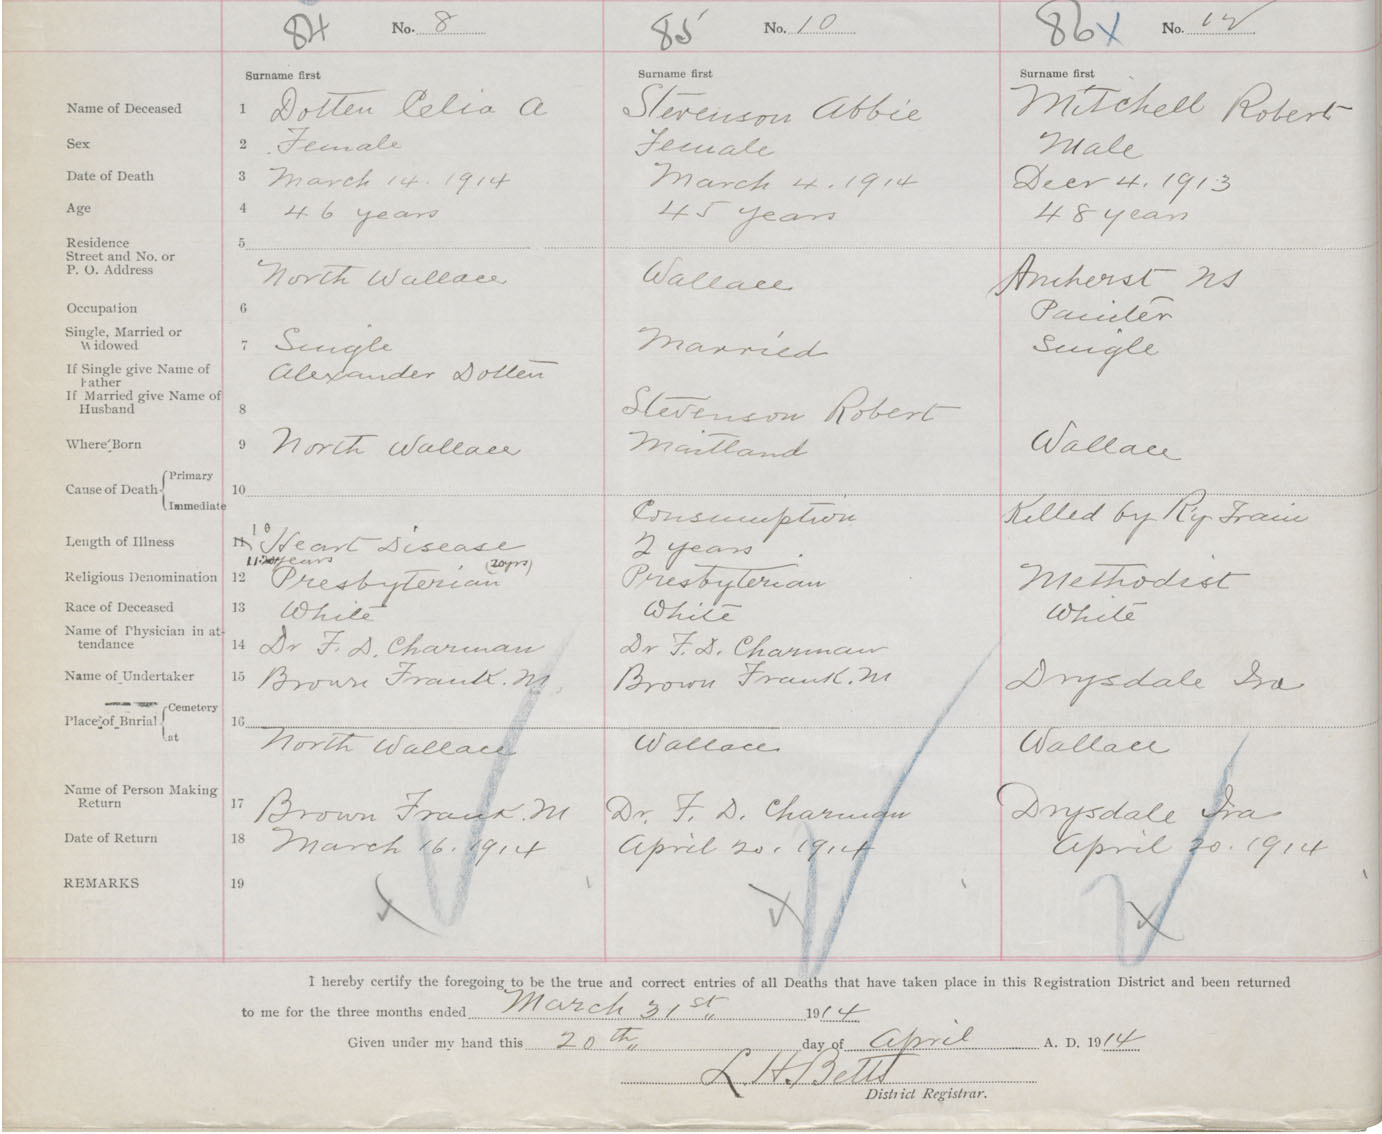 84 No. 8 85 No. 10 86 x No. 12
Surname first Surname first Surname first
Name of Deceased 1 Dotten Celia A Stevenson Abbie Mitchell Robert
Sex 2 Female Female Male
Date of Death 3 March 14. 1914 March 4. 1914 Decr 4. 1913
Age 4 46 years 45 years 48 years
Residence 5
Street and No. or
P. O. Address North Wallace Wallace Amherst NS
Occupation 6 Painter
Single, Married or
Widowed 7 Single Married Single
If Single give Name of
Father Alexander Dotten
If Married give Name of
Husband 8 Stevenson Robert
Where Born 9 North Wallace Maitland Wallace
Cause of Death Primary
Immediate 10 Consumption Killed by Ry Train
10
Length of Illness 11 Heart Disease 2 years
years (20yrs)
Religious Denomination 12 Presbyterian Presbyterian Methodist
Race of Deceased 13 White White White
Name of Physician in at-
tendance 14 Dr F. D. Charman Dr F. D. Charman
Name of Undertaker 15 Brown Frank. M. Brown Frank. M Drysdale Ira
Place of Burial Cemetery
at 16 North Wallace Wallace Wallace
Name of Person Making
Return 17 Brown Frank. M Dr. F. D. Charman Drysdale Ira
Date of Return 18 March 16. 1914 April 20. 1914 April 20. 1914
REMARKS 19
I hereby certify the foregoing to be the true and correct entries of all Deaths that have taken place in this Registration District and been returned
to me for the three months ended March 31st 1914
Given under my hand this 20th day of April A. D. 1914
L. H. Betts
District Registrar.